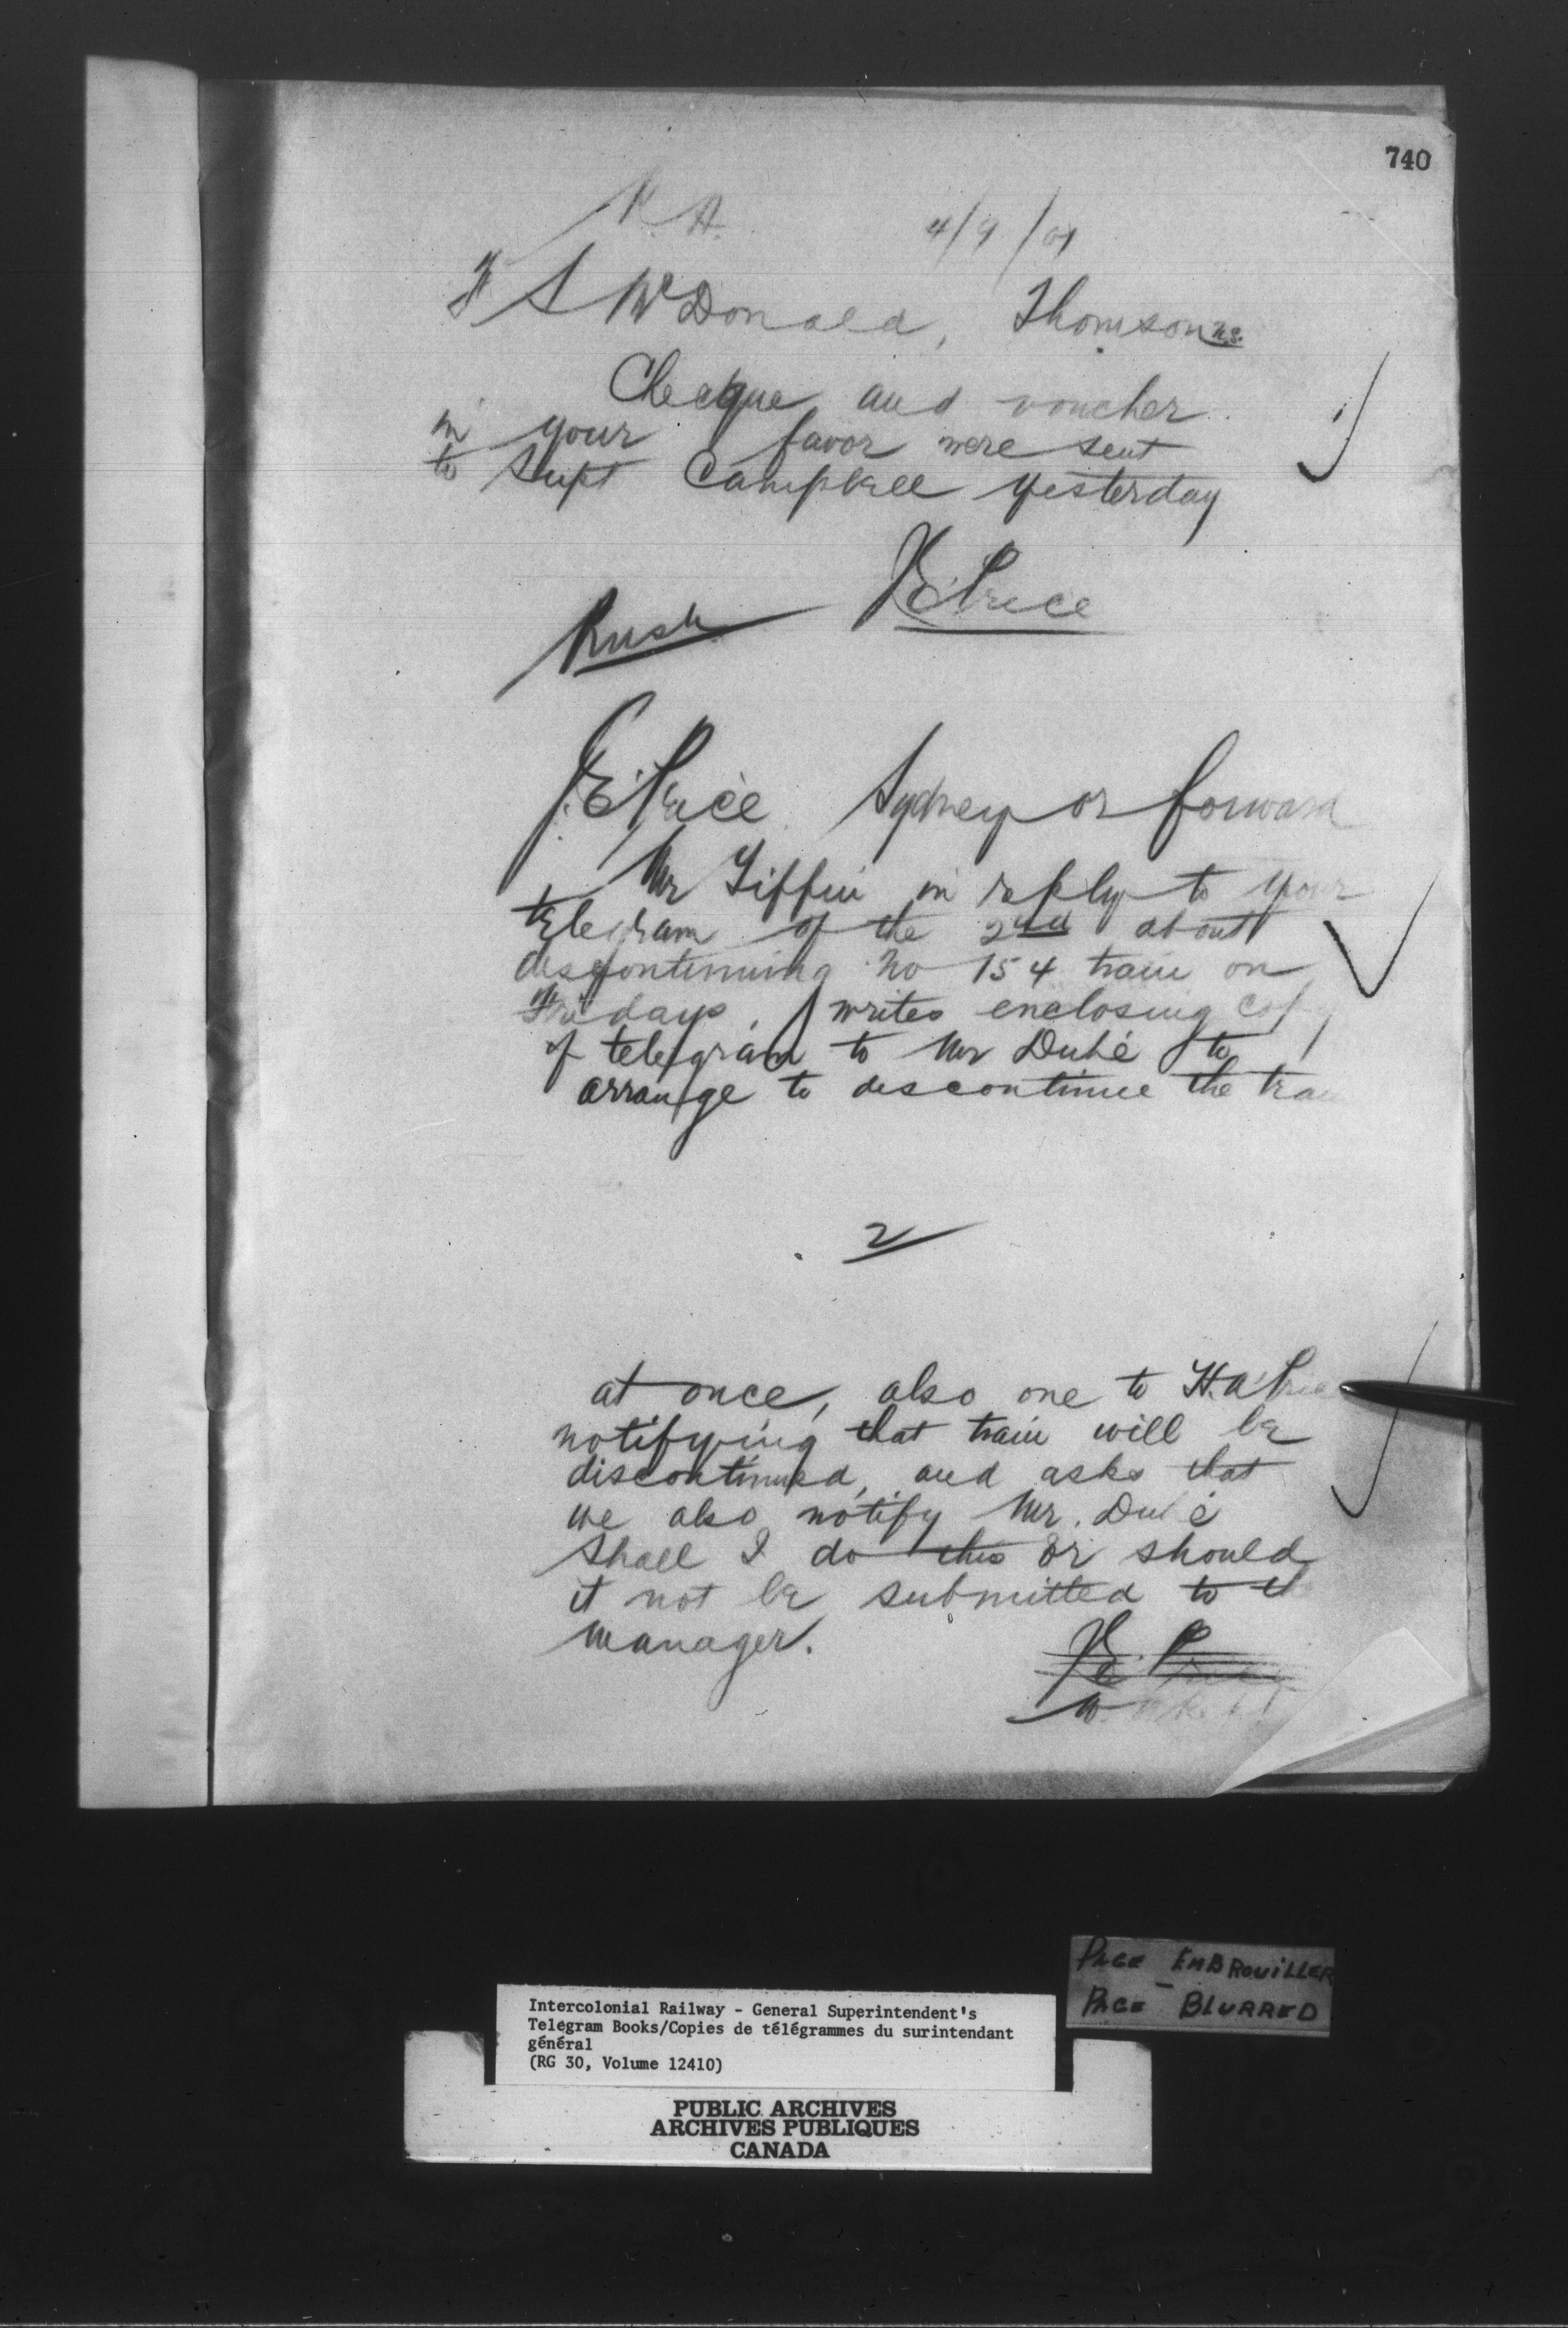 740
4/9/01
S McDonald, Thomson N.S.
Cheque and voucher
in your favor were sent
to Supt Campbell yesterday
J.E. Price
Rush
J.E. Price Sydney or forward
Mr Tiffin in reply to your
telegram of the 2nd about
discontinuing No 154 train on
Fridays, writes enclosing copy
of telegram to Mr Dubé to
arrange to discontinue the train
2
at once, also one to H.A. Price
notifying that train will be
discontinued, and asks that
we also notify Mr. Dubé
Shall I do this or should
it not be submitted to the
manager.
J.E. Price
PAGE EMBROUILLER
PAGE - BLURRED
Intercolonial Railway - General Superintendent's
Telegram Books/Copies de télégrammes du surintendant
général
(RG 30, Volume 12410)
PUBLIC ARCHIVES
ARCHIVES PUBLIQUES
CANADA